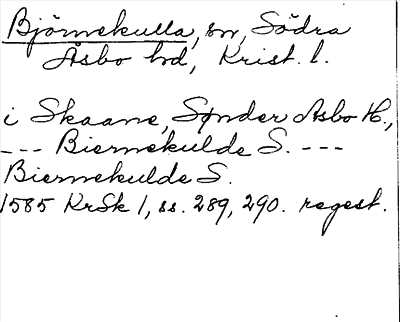 Björnekulla, sn, Södra
Åsbo hd, Krist. l.
i Skaane, Sønder Asbo H.,
--- Biernekulde S. ---
Biernekulde S.
1585 KrSk 1, ss. 289, 290. regest.